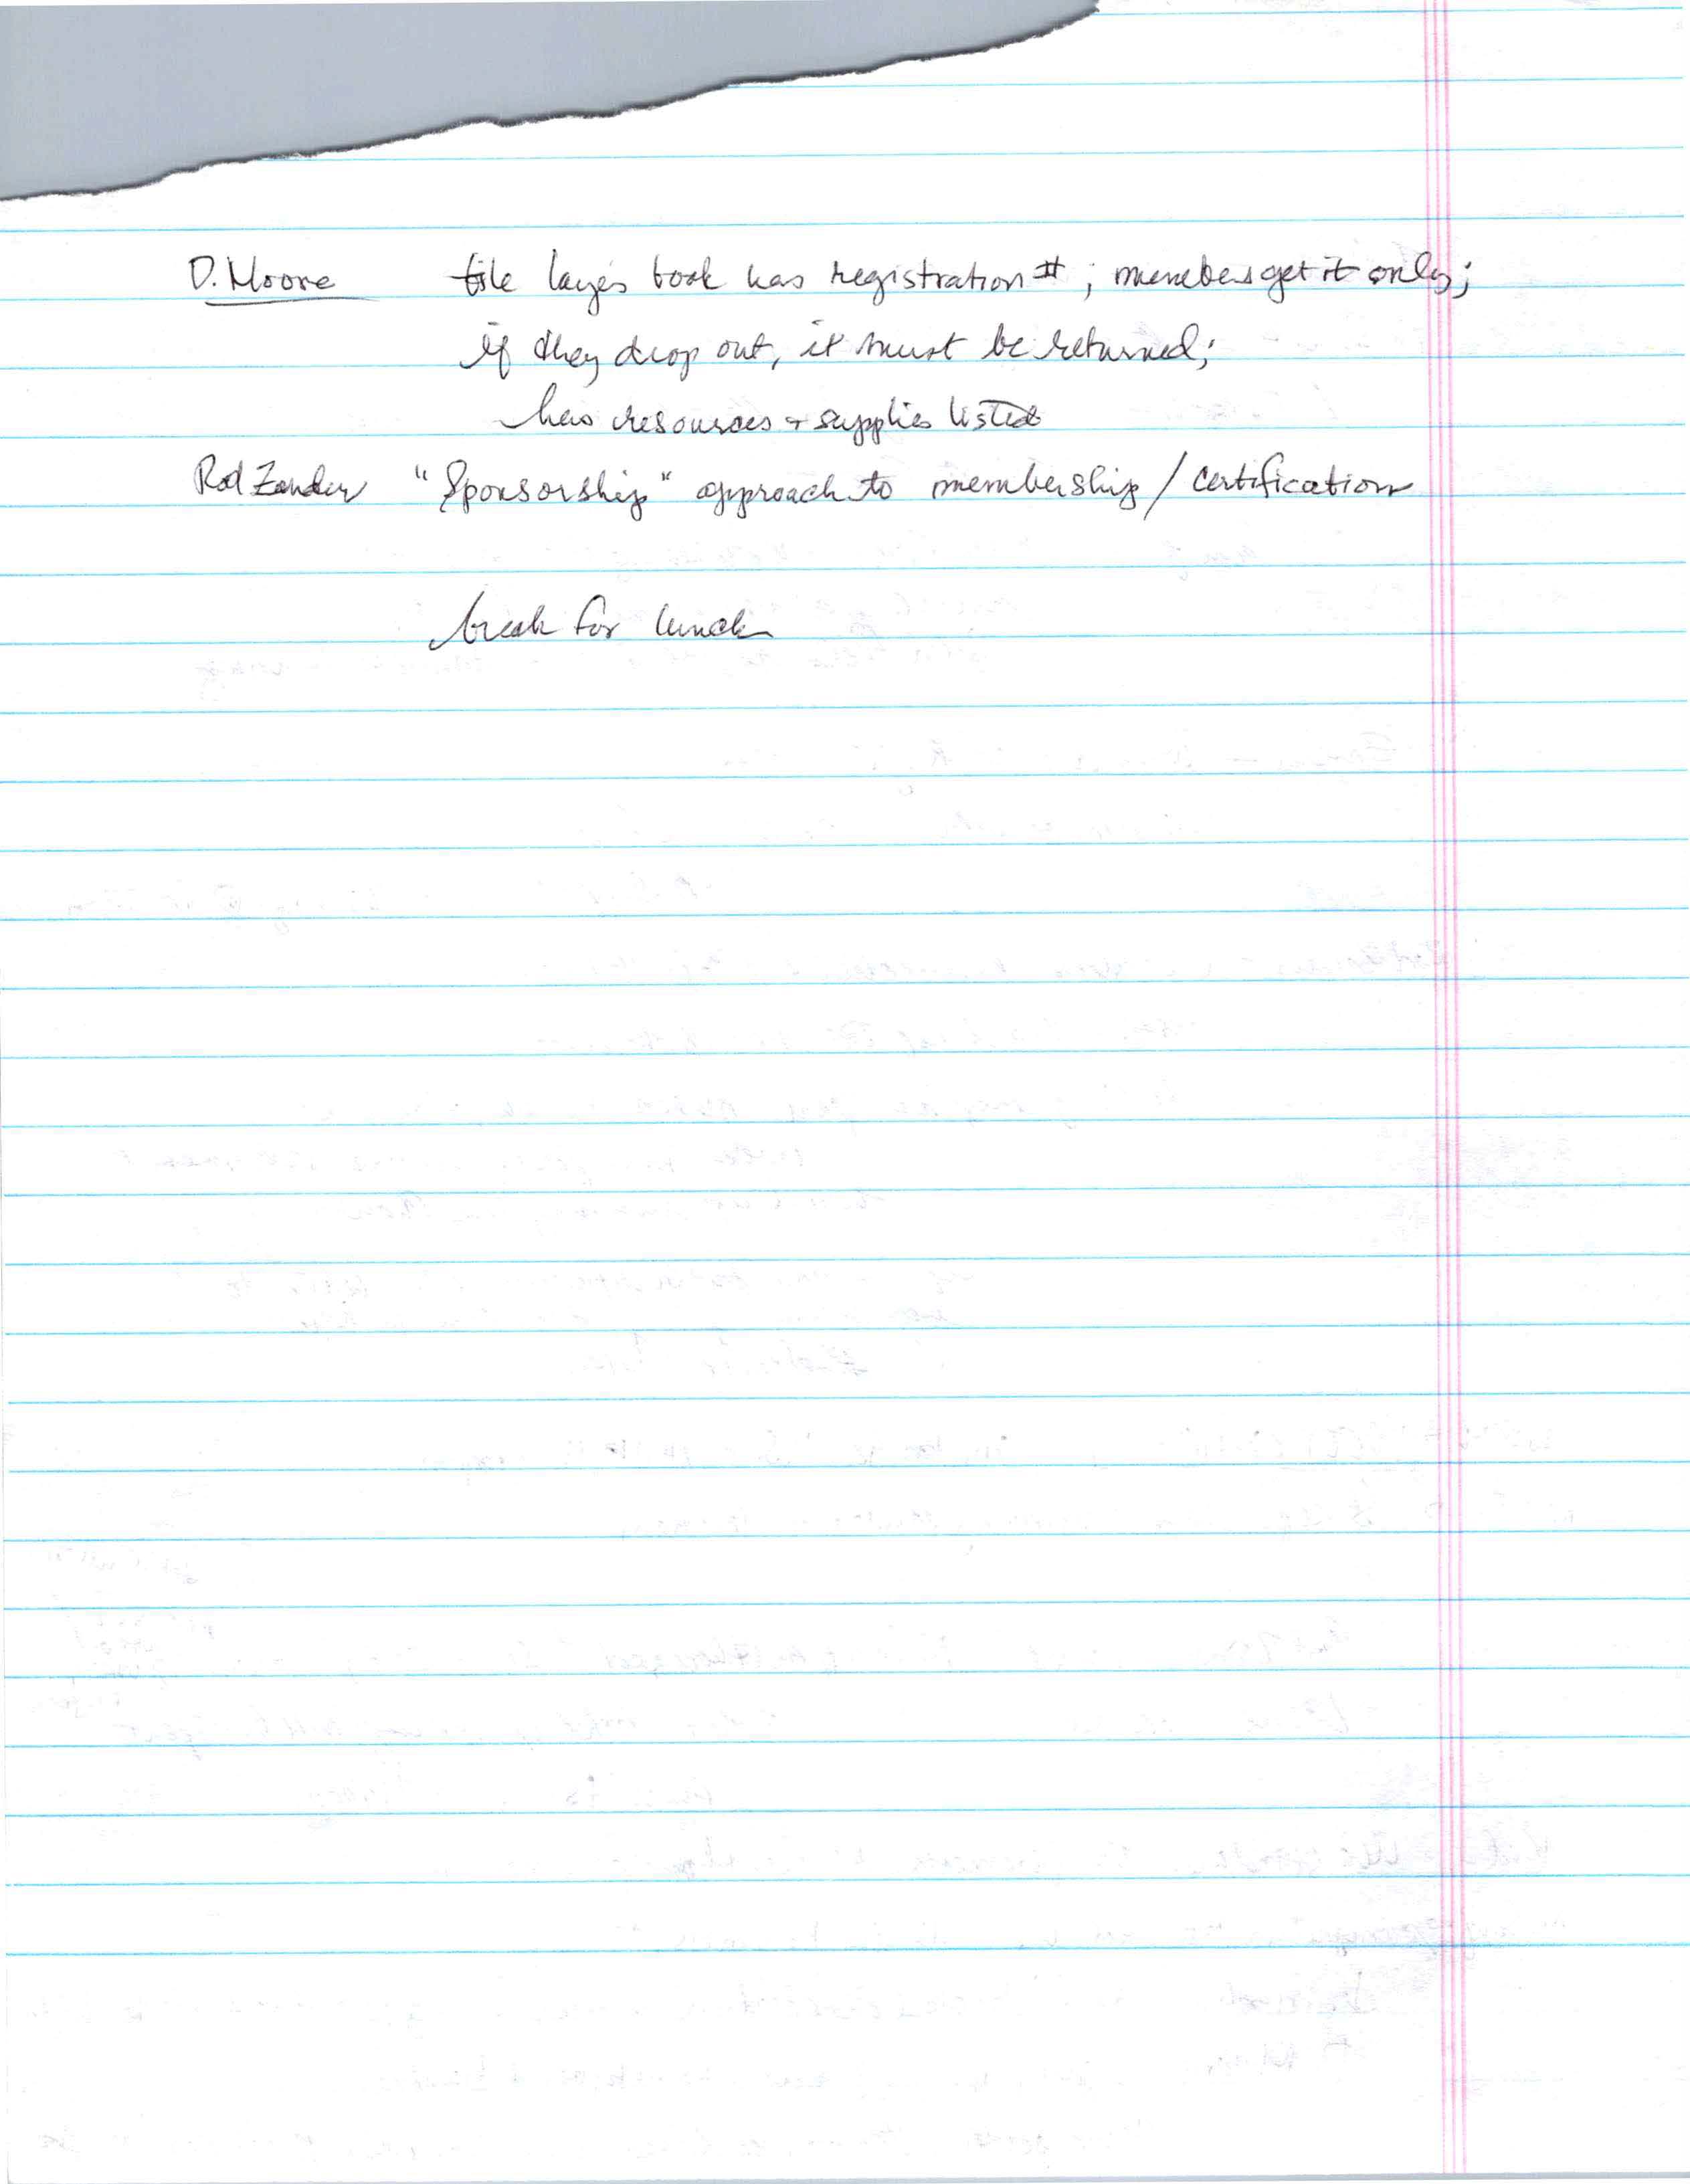 D. Moore tile layer's book has registration #; members get it only;
if they drop out, it must be returned;
has resources + supplies listed
Rod Zander "Sponsorship" approach to membership / certification
break for lunch